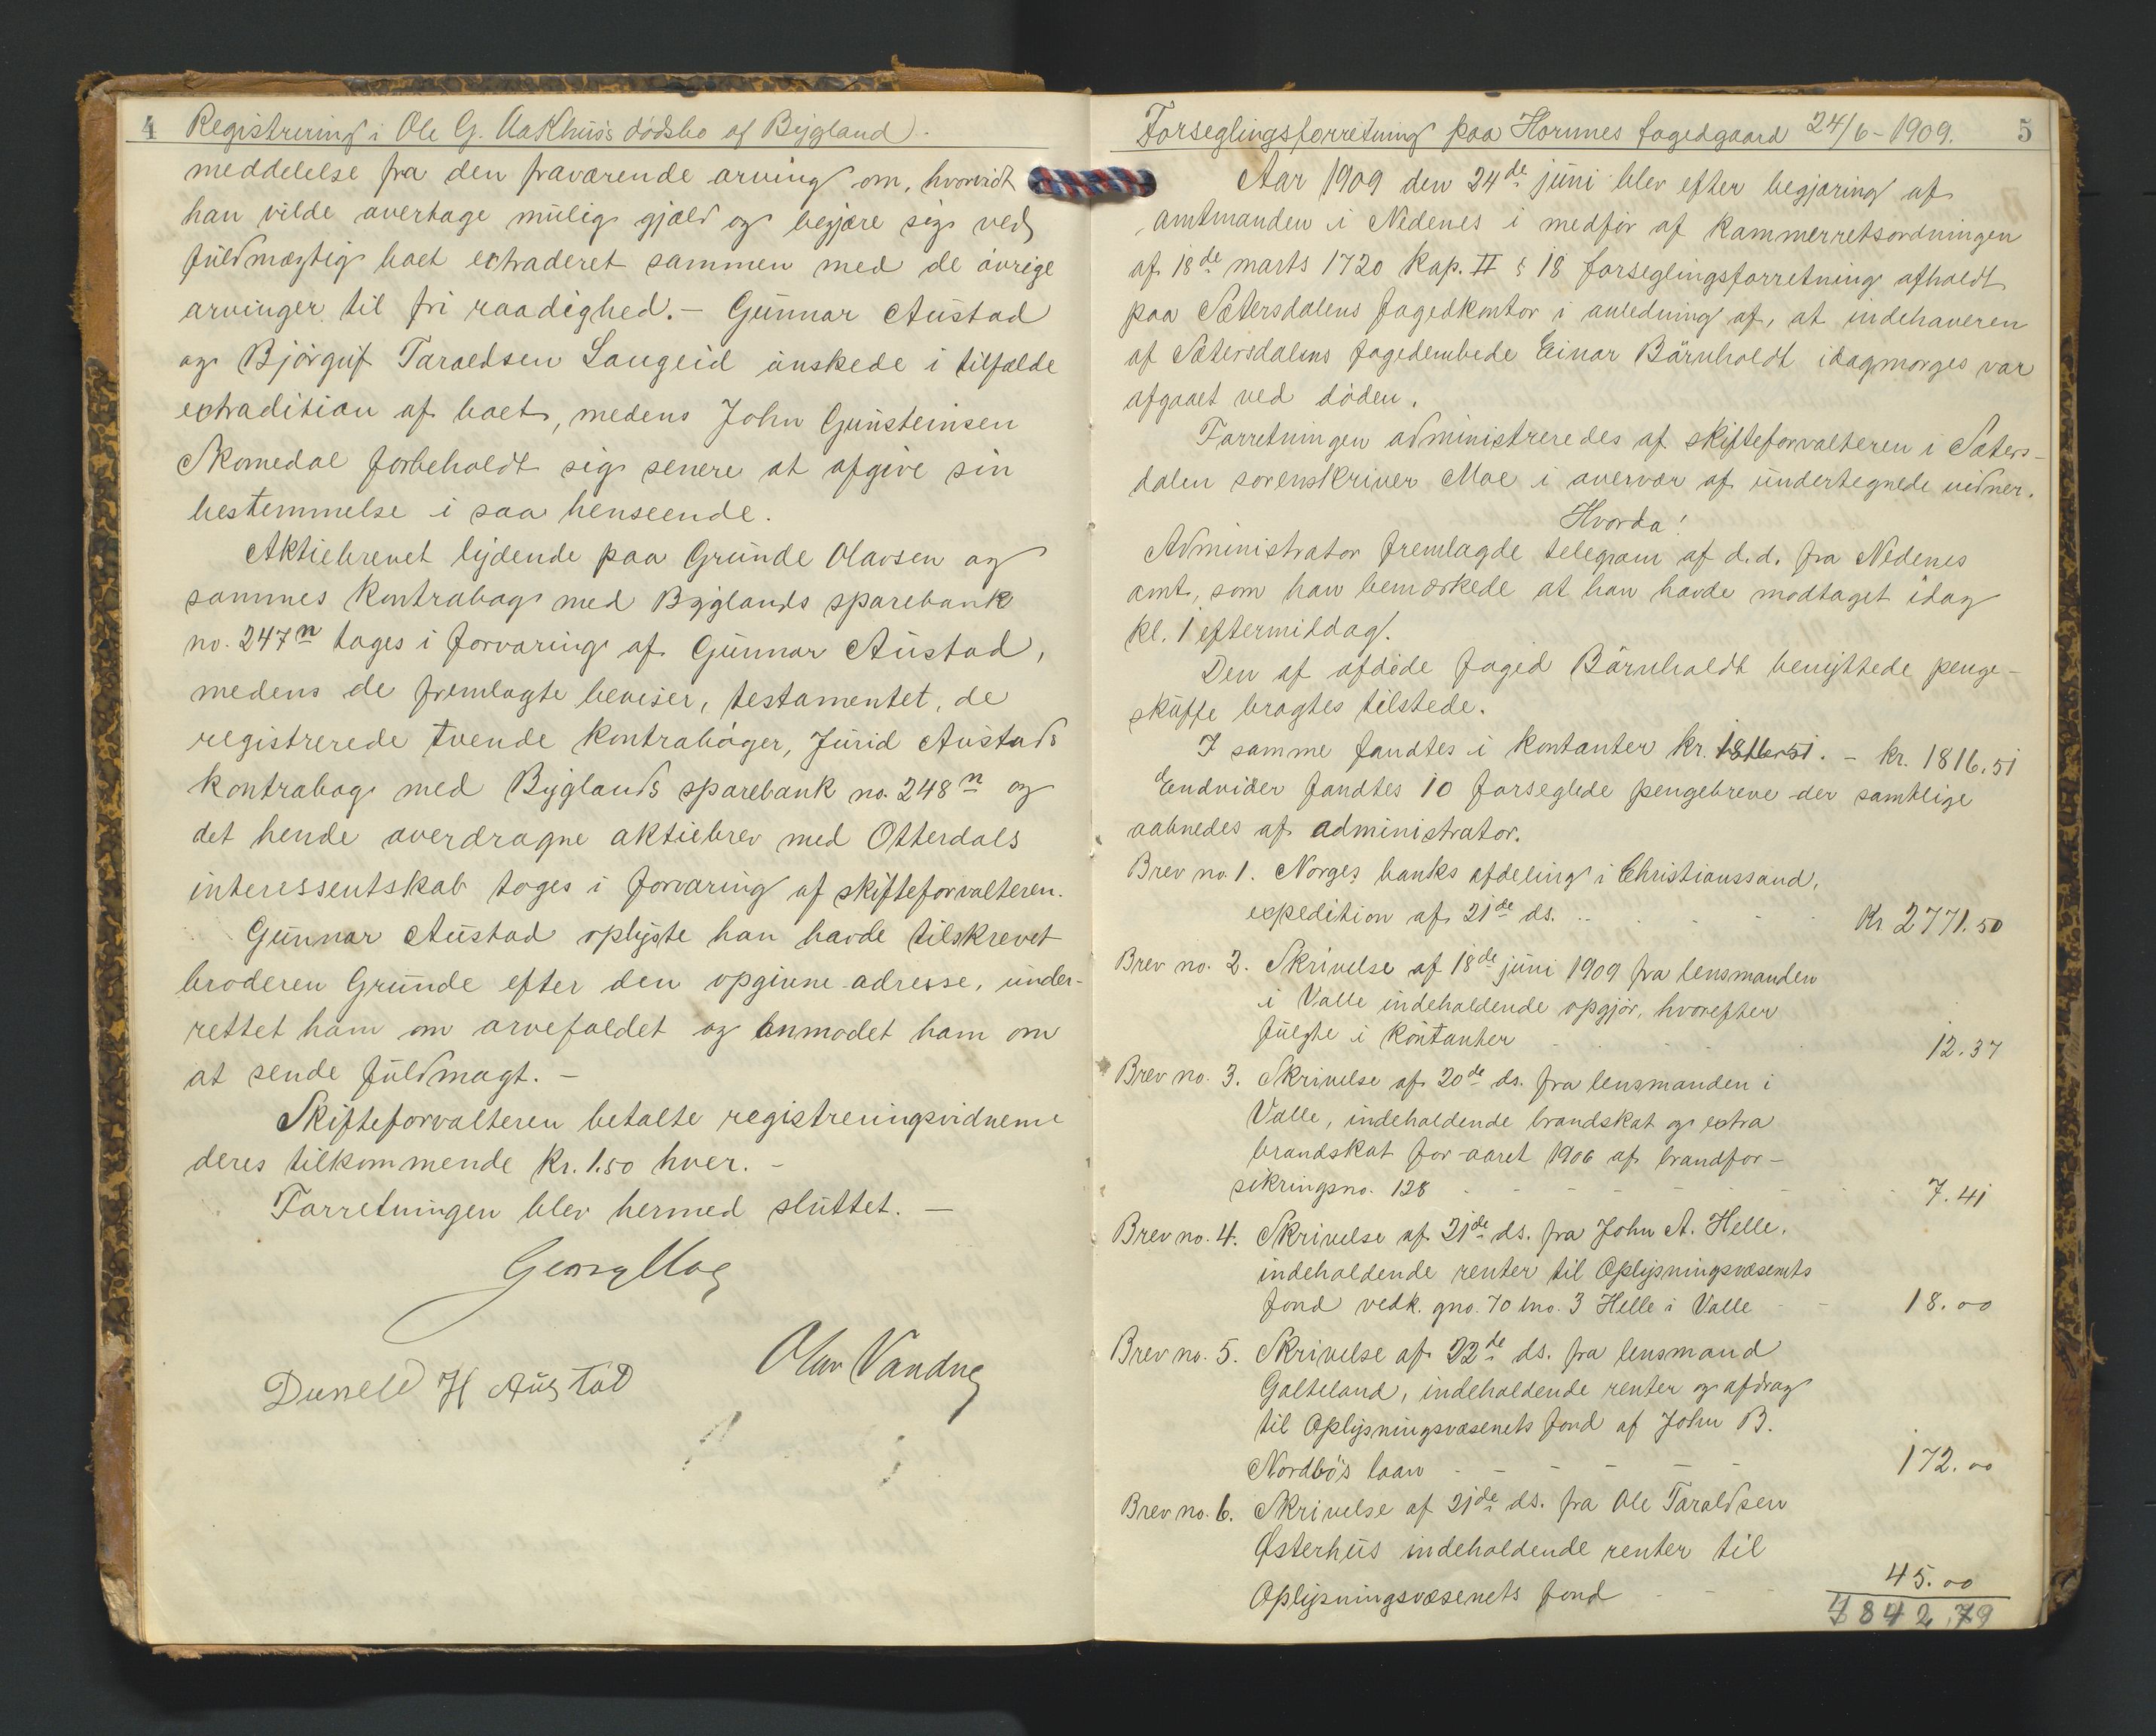 4 Registrering i Ole G. Aakhus's dødsbo af Bygland.
meddelelse fra den fraværende arving om, hvorvidt
han vilde overtage mulig gjæld og begjære sig ved
fuldmægtig boet extraderet sammen med de øvrige
arvinger til fri raadighed. – Gunnar Austad
og Bjørguf Taraldsen Langeid ønskede i tilfælde
extradition af boet, medens John Gunsteinsen
Skomedal forbeholdt sig senere at afgive sin
bestemmelse i saa henseende.
Aktiebrevet lydende paa Grunde Olavsen og
sammes kontrabog med Byglands sparebank
no. 247n tages i forvaring af Gunnar Austad,
medens de fremlagte beviser, testamentet, de
registrerede tvende kontrabøger, Jurid Austads
kontrabog med Byglands sparebank no. 248n og
det hende overdragne aktiebrev med Otterdals
interessentskab toges i forvaring af skifteforvalteren.
Gunnar Austad oplyste han havde tilskrevet
broderen Grunde efter den opgivne adresse, under-
rettet ham om arvefaldet og anmodet ham om
at sende fuldmagt. –
Skifteforvalteren betalte registreringsvidnerne
deres tilkommende kr. 1.50 hver. –
Forretningen blev hermed sluttet. –
Georg Moe
Olav Vandne
H Austad
Forseglingsforretning paa Hornnes fogedgaard 24/6 – 1909. 5
Aar 1909 den 24de juni blev efter begjæring af
amtmanden i Nedenes i medfør af kammerretsordningen
af 18de marts 1720 kap. II § 18 forseglingsforretning afholdt
paa Sætersdalens fogedkontor i anledning af, at indehaveren
af Sætersdalens fogedembede Einar Bärnholdt idagmorges var
afgaaet ved døden.
Forretningen administreredes af skifteforvalteren i Sæters-
dalen sorenskriver Moe i overvær af undertegnede vidner.
Hvorda!
Administrator fremlagde telegram af d.d. fra Nedenes
amt, som han bemærkede at han havde modtaget idag
kl. 1 eftermiddag.
Den af afdøde foged Bärnholdt benyttede penge-
skuffe bragtes tilstede.
I samme fandtes i kontanter kr. 1816.51. – kr. 1816.51
Endvider fandtes 10 forseglede pengebreve der samtlige
aabnedes af administrator.
Brev no. 1. Norges banks afdeling i Christianssand,
expedition af 21de ds. Kr 2771.50
Brev no. 2. Skrivelse af 18de juni 1909 fra lensmanden
i Valle indeholdende opgjør, hvorefter
fulgte i kontanter 12.37
Brev no. 3. Skrivelse af 20de ds. fra lensmanden i
Valle, indeholdende brandskat og extra
brandskat for aaret 1906 af brandfor-
sikringsno. 128 7.41
Brev no. 4. Skrivelse af 21de ds. fra John A. Helle,
indeholdende renter til Oplysningsvæsenets
fond vedk. gno. 70 bno. 3 Helle i Valle 18.00
Brev no. 5. Skrivelse af 22de ds. fra lensmand
Galteland, indeholdende renter og afdrag
til Oplysningsvæsenets fond af John B.
Nordbø's laan 172.00
Brev no. 6. Skrivelse af 21de ds. fra Ole Taraldsen
Østerhus indeholdende renter til
Oplysningsvæsenets fond 45.00
4842.79